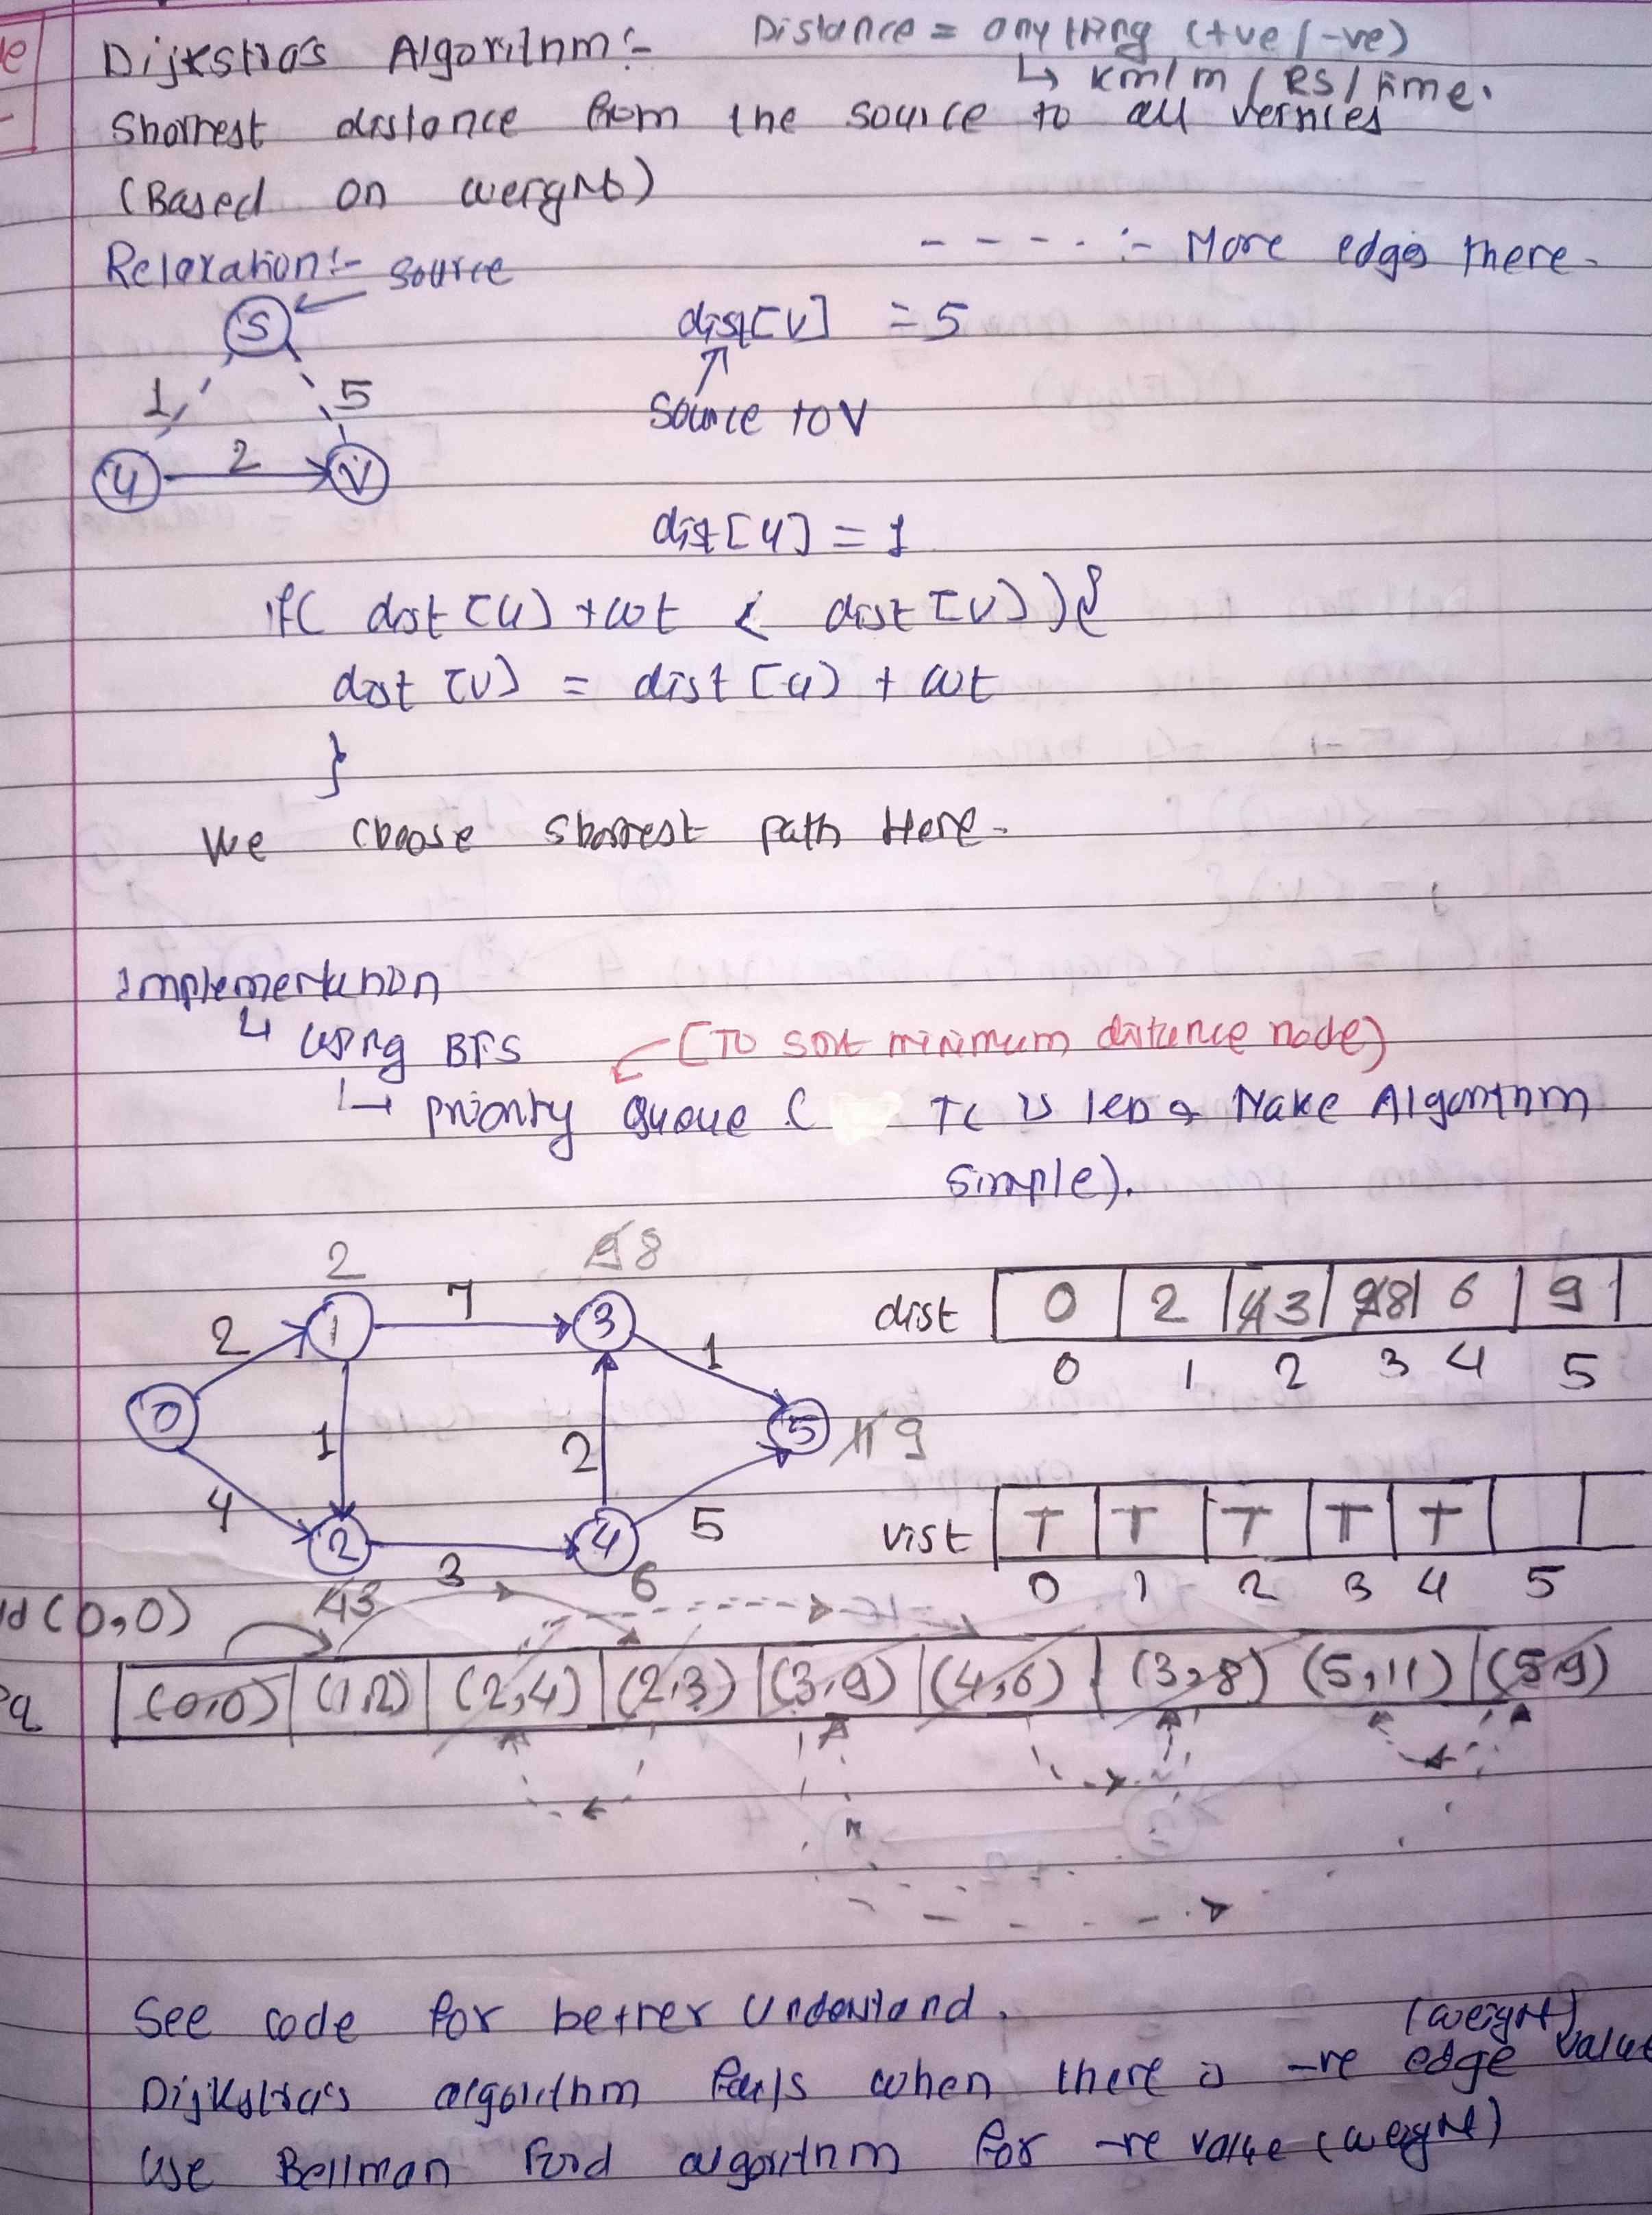 Dijkstra's Algorithm :- Distance = anything (+ve/-ve)
↳ km/m/RS/time.
Shortest distance from the source to all vertices
(Based on weight)
---- :- More edges there.
Relaxation :- source
S
dist[V] = 5
1 5
Source to V
u 2 V
dist[u] = 1
if( dist[u] + wt < dist[v] ){
dist[v] = dist[u] + wt
}
We choose shortest path Here.
Implementation
↳ using BFS
[To sort minimum distance node]
↳ priority queue ( TC is less & Make Algorithm
simple).
2 9 8
7
dist 0 2 4 3 9 8 6 9
0 1 2 3 4 5
2 1 3 1
0 1 2 5 11 9
4 5
2 3 4
4 3 6
vist T T T T T
0 1 2 3 4 5
(0,0)
pq (0,0) (1,2) (2,4) (2,3) (3,9) (4,6) (3,8) (5,11) (5,9)
See code for better Understand.
(weight)
Dijkstra's algorithm fails when there is -ve edge value
use Bellman Ford algorithm for -ve value (weight)